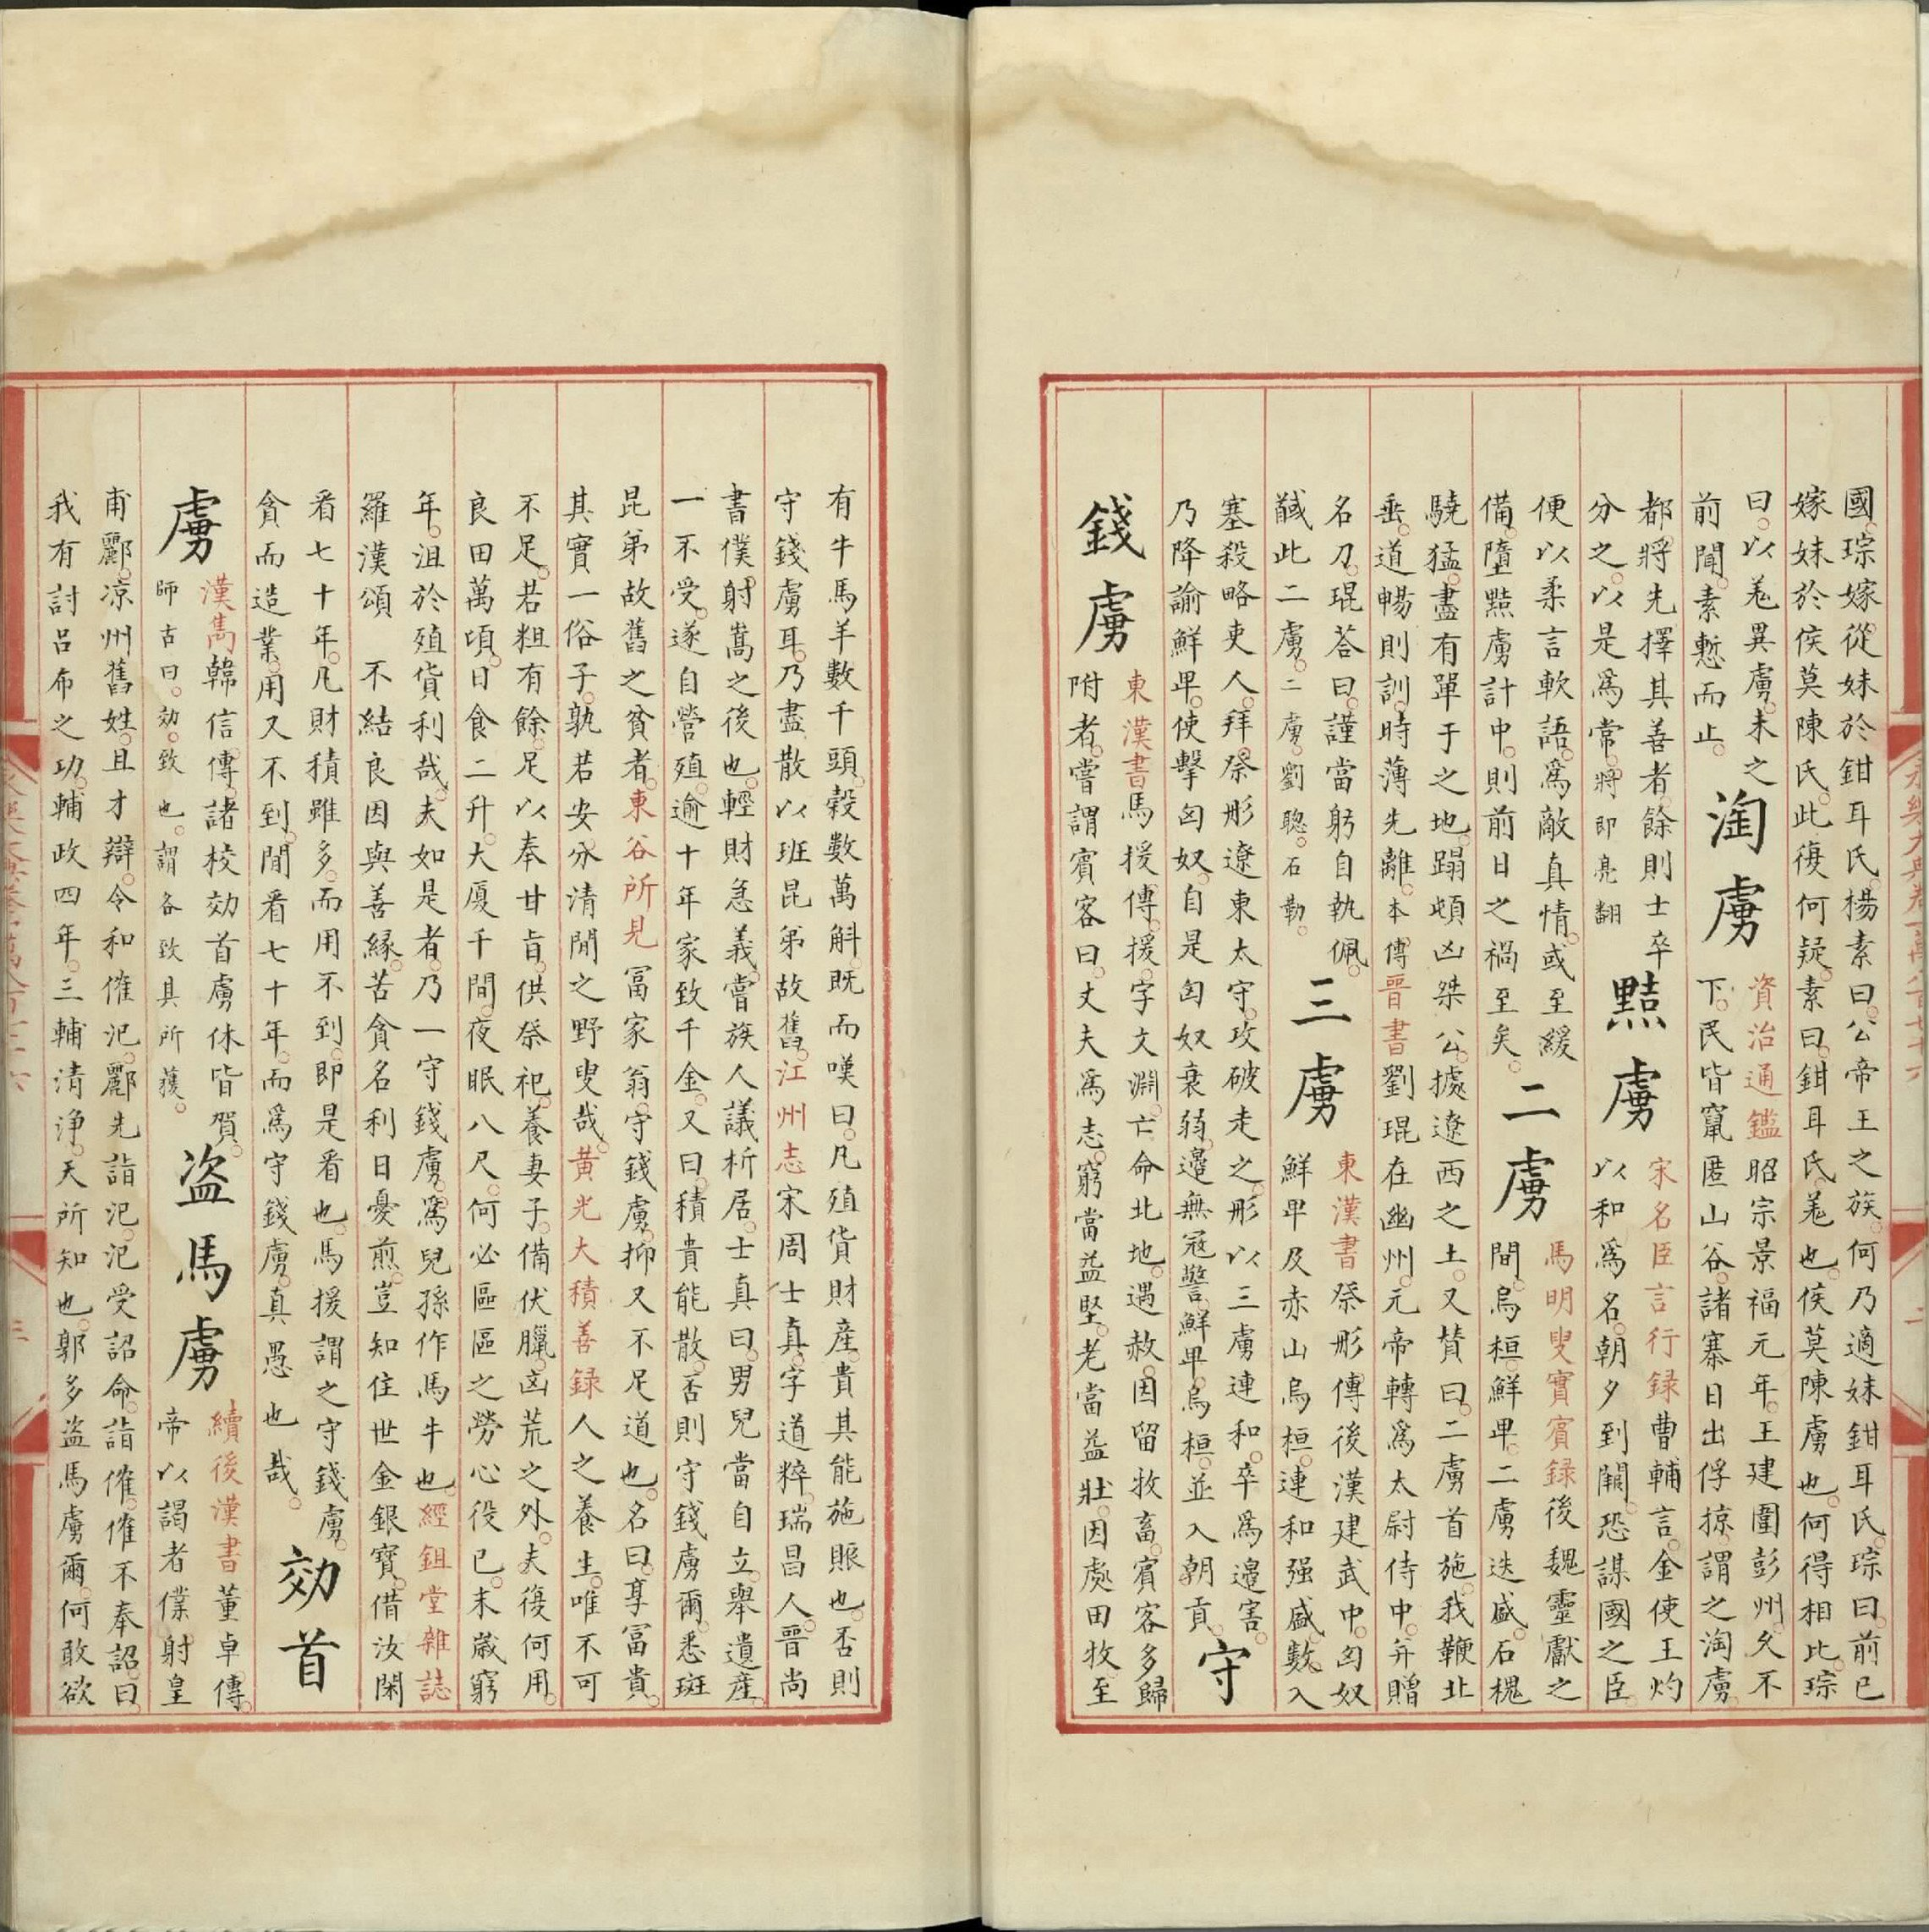 國琮嫁從妹於鉗耳氏楊素曰公帝王之族何乃適妹鉗耳氏琮曰前已
嫁妹於侯莫陳氏此復何疑素曰鉗耳氏羌也侯莫陳虜也何得相比琮
曰以羌異虜未之
前聞素慙而止
淘虜
資治通鑑昭宗景福元年王建圍彭州久不
下民皆竄匿山谷諸寨日出俘掠謂之淘虜
都將先擇其善者餘則士卒
分之以是爲常將即亮翻
黠虜
宋名臣言行録曹輔言金使王灼
以和爲名朝夕到闕恐謀國之臣
便以柔言軟語爲敵真情或至緩
備墮黠虜計中則前日之禍至矣
二虜
馬明叟實賓録後魏靈獻之
間烏桓鮮卑二虜迭盛石槐
驍猛盡有單于之地蹋頓凶桀公據遼西之土又賛曰二虜首施我鞭北
垂道暢則訓時薄先離本傳晋書劉琨在幽州元帝轉爲太尉侍中并贈
名刀琨荅曰謹當躬自執佩
馘此二虜二虜劉聰石勒
三虜
東漢書祭肜傳後漢建武中匈奴
鮮卑及赤山烏桓連和强盛數入
塞殺略吏人拜祭肜遼東太守攻破走之肜以三虜連和卒爲邉害
乃降諭鮮卑使擊匈奴自是匈奴衰弱邉無冦警鮮卑烏桓並入朝貢
守
錢虜
東漢書馬援傳援字文淵亡命北地遇赦因留牧畜賓客多歸
附者嘗謂賓客曰丈夫爲志窮當益堅老當益壯因處田牧至
有牛馬羊數千頭榖數萬斛既而嘆曰凡殖貨財産貴其能施賑也否則
守錢虜耳乃盡散以班昆弟故舊江州志宋周士真字道粹瑞昌人晋尚
書僕射嵩之後也輕財急義嘗族人議析居士真曰男兒當自立舉遺産
一不受遂自營殖逾十年家致千金又曰積貴能散否則守錢虜爾悉班
昆弟故舊之貧者東谷所見冨家翁守錢虜抑又不足道也名曰享冨貴
其實一俗子孰若安分清閒之野叟哉黄光大積善録人之養生唯不可
不足若粗有餘足以奉甘旨供祭祀養妻子備伏臘凶荒之外夫復何用
良田萬頃日食二升大厦千間夜眠八尺何必區區之勞心役已末歳窮
年沮於殖貨利哉夫如是者乃一守錢虜爲兒孫作馬牛也經鉏堂雜誌
羅漢頌 不結良因與善縁苦貪名利日憂煎豈知住世金銀寳借汝閑
看七十年凡財積雖多而用不到即是看也馬援謂之守錢虜
貪而造業用又不到閒看七十年而爲守錢虜真愚也哉
効首
虜
漢雋韓信傳諸校効首虜休皆賀
師古曰効致也謂各致其所獲
盗馬虜
續後漢書董卓傳
帝以謁者僕射皇
甫酈凉州舊姓且才辯令和傕汜酈先詣汜汜受詔命詣傕傕不奉詔曰
我有討呂布之功輔政四年三輔清浄天所知也郭多盗馬虜爾何敢欲